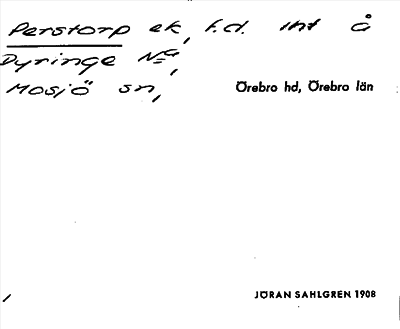 Perstorp ek, f.d. tnt å
Dyringe Na,
Mosjö sn,
Örebro hd, Örebro län
JÖRAN SAHLGREN 1908